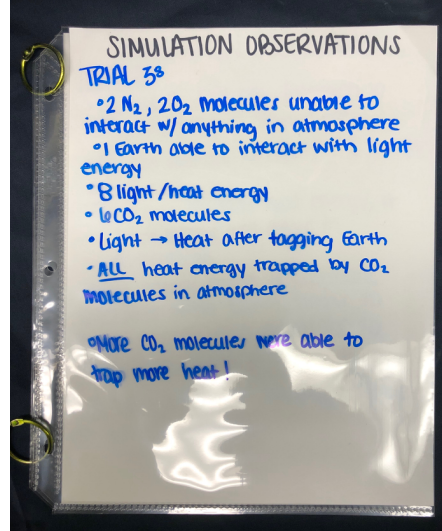 SIMULATION OBSERVATIONS
TRIAL 3:
•2 N₂, 2O₂ molecules unable to
interact w/ anything in atmosphere
•1 Earth able to interact with light
energy
•8 light/heat energy
•6CO₂ molecules
•Light → Heat after tagging Earth
•ALL heat energy trapped by CO₂
molecules in atmosphere
•More CO₂ molecules were able to
trap more heat!